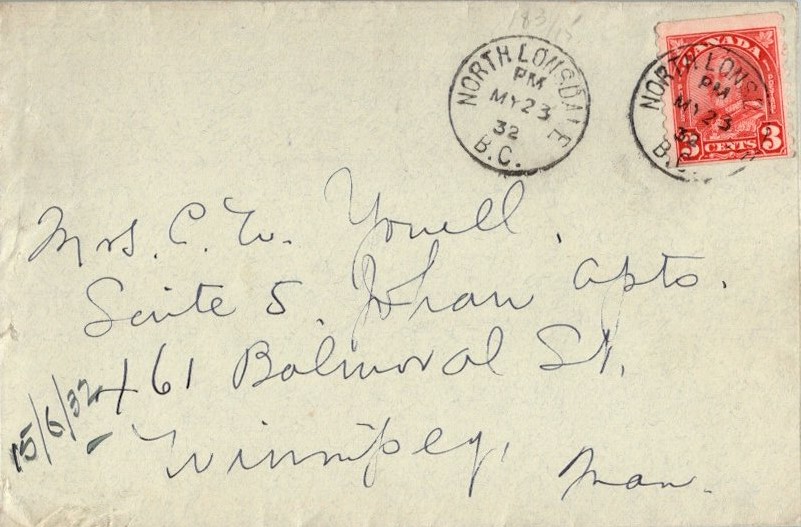 183/15
NORTH LONSDALE
PM
MY 23
32
B.C.
CANADA
3 CENTS 3
NORTH LONS
PM
MY 23
32
B.C.
Mrs. C. W. Youell,
Suite 5, Johan Apts.
461 Balmoral St.
15/6/32
Winnipeg,
Man.